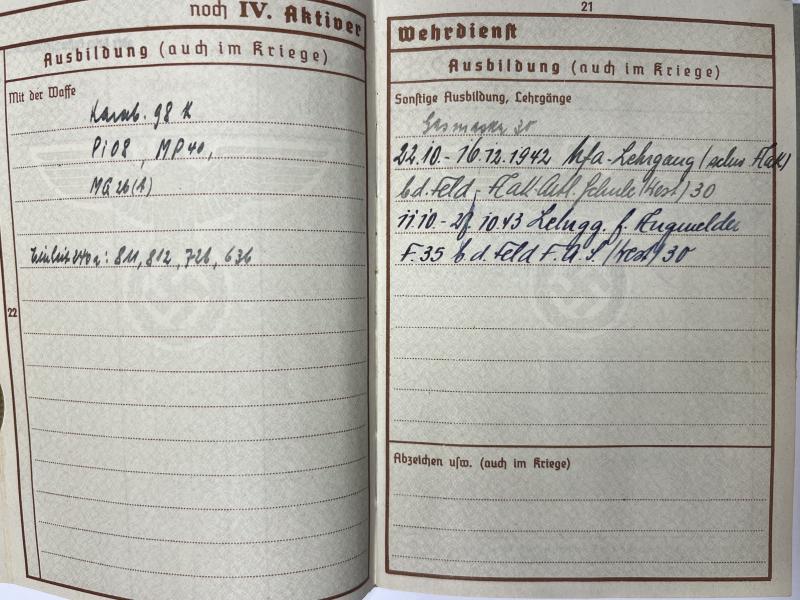 noch IV. Aktiver
Ausbildung (auch im Kriege)
Mit der Waffe
Karab. 98 K
Pi 08, MP 40,
MG 26 (t)
22
: 811, 812, 726, 636
21
Wehrdienst
Ausbildung (auch im Kriege)
Sonstige Ausbildung, Lehrgänge
Gasmaske 30
22.10.-16.12.1942 Ufa-Lehrgang (schw. Flak)
b. d. Feld-Flak-Artl. Schule (West) 30
11.10.-27.10.43 Lehrgg. f. Flugmelder
F. 35 b. d. Feld F.A.S. (West) 30
Abzeichen usw. (auch im Kriege)